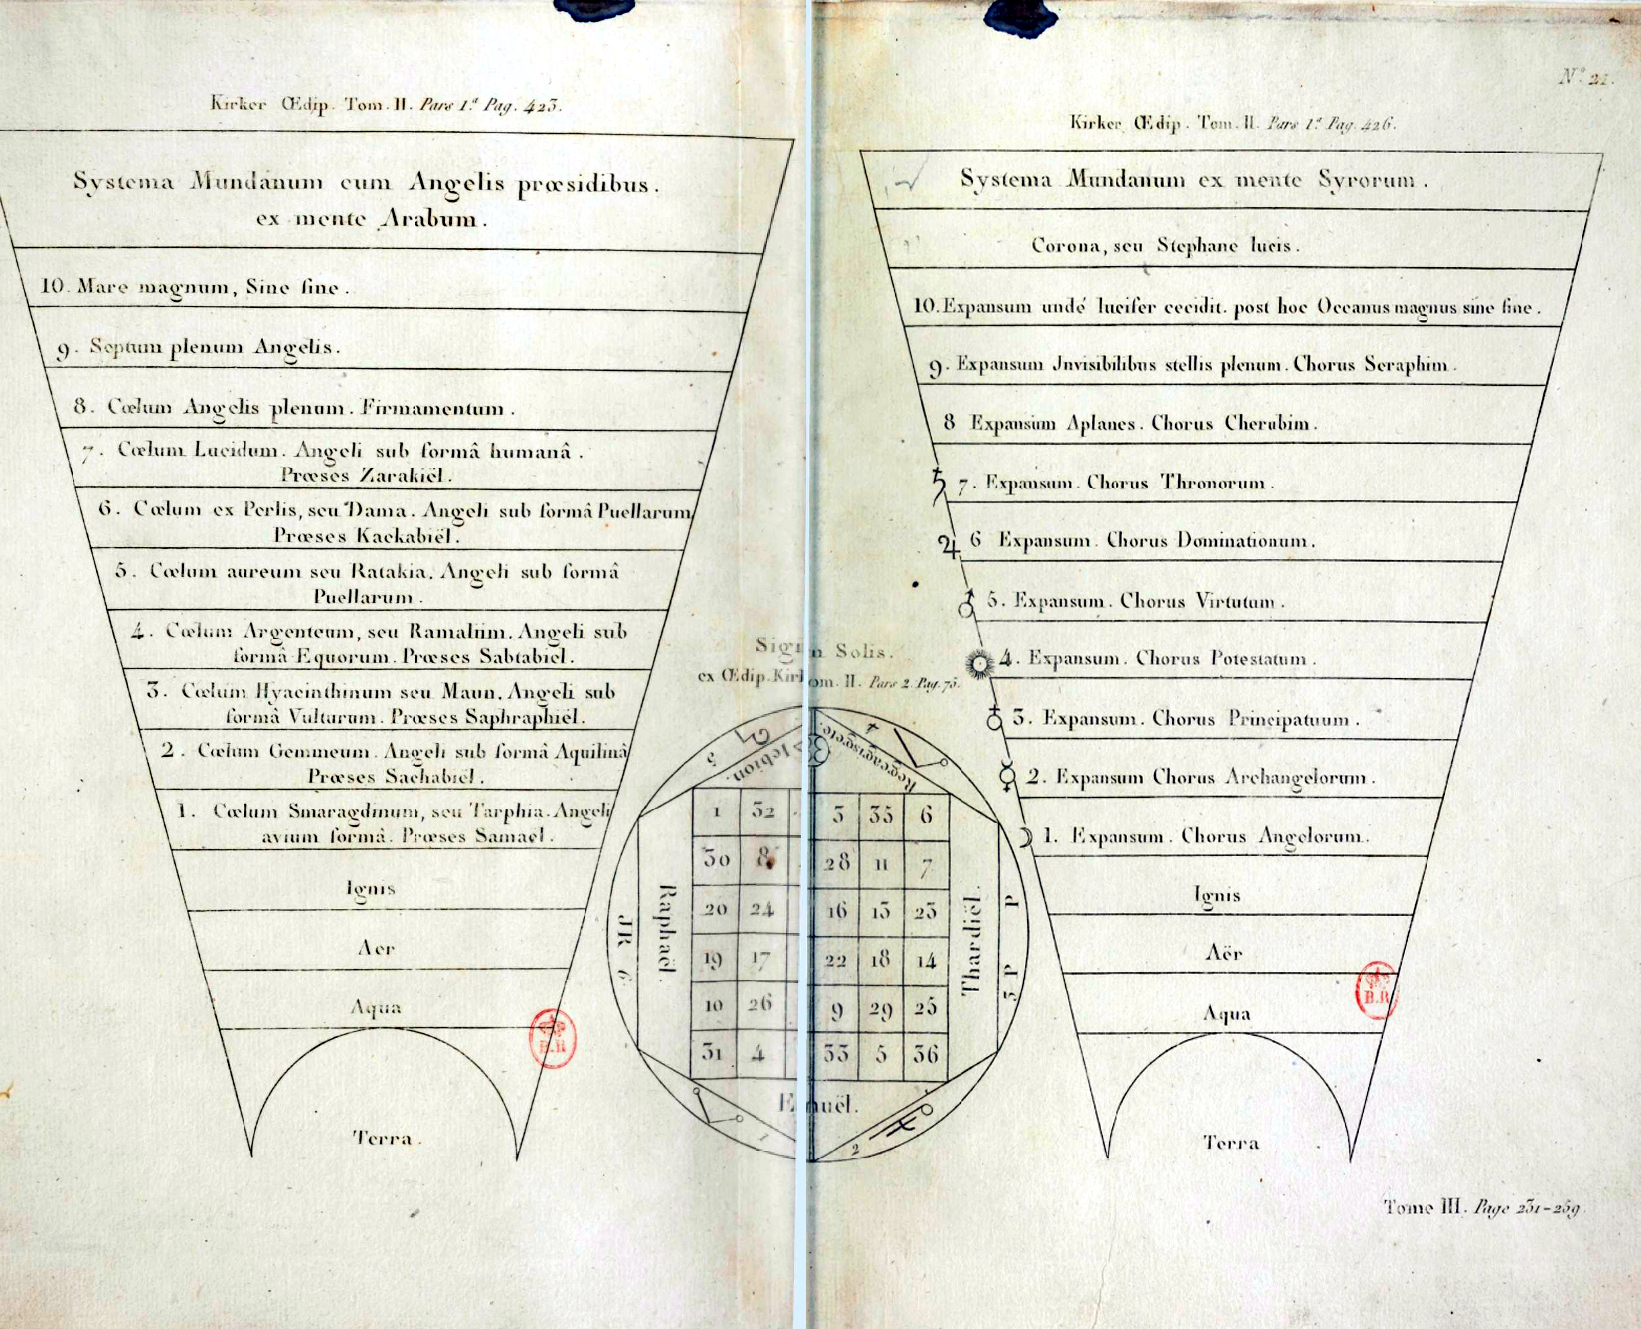 Nº 21.
Kirker Œdip. Tom. II. Pars 1.ª Pag. 423.
Systema Mundanum cum Angelis præsidibus.
ex mente Arabum.
10. Mare magnum, Sine fine.
9. Septum plenum Angelis.
8. Cœlum Angelis plenum. Firmamentum.
7. Cœlum Lucidum. Angeli sub formâ humanâ.
Præses Zarakiël.
6. Cœlum ex Perlis, seu Dama. Angeli sub formâ Puellarum,
Præses Kackabiël.
5. Cœlum aureum seu Ratakia. Angeli sub formâ
Puellarum.
4. Cœlum Argenteum, seu Ramaliim. Angeli sub
formâ Equorum. Præses Sabtabiel.
3. Cœlum Hyacinthinum seu Maun. Angeli sub
formâ Vulturum. Præses Saphraphiël.
2. Cœlum Gemmeum. Angeli sub formâ Aquilinâ
Præses Sachabiel.
1. Cœlum Smaragdinum, seu Tarphia. Angeli
avium formâ. Præses Samael.
Ignis
Aer
Aqua
Terra.
B.R
Sigi n Solis.
ex Œdip. Kirk om. II. Pars 2. Pag. 75.
3
4
lebion.
1 32 3 35 6
30 8 28 11 7
20 24 16 13 23
19 17 22 18 14
10 26 9 29 25
31 4 33 5 36
Raphaël.
JR 6
Thardiël.
5 P P
E nuël.
1
2
Kirker Œdip. Tom. II. Pars 1ª Pag. 426.
Systema Mundanum ex mente Syrorum.
Corona, seu Stephane lucis.
10. Expansum undé lucifer cecidit. post hoc Occanus magnus sine fine.
9. Expansum Jnvisibilibus stellis plenum. Chorus Seraphim.
8 Expansum Aplanes. Chorus Cherubim.
♄ 7. Expansum. Chorus Thronorum.
♃ 6 Expansum. Chorus Dominationum.
♂ 5. Expansum. Chorus Virtutum.
4. Expansum. Chorus Potestatum.
♁ 3. Expansum. Chorus Principatuum.
☿ 2. Expansum Chorus Archangelorum.
☽ 1. Expansum. Chorus Angelorum.
Ignis
Aër
Aqua
Terra
B.R
Tome III. Page 231-259.